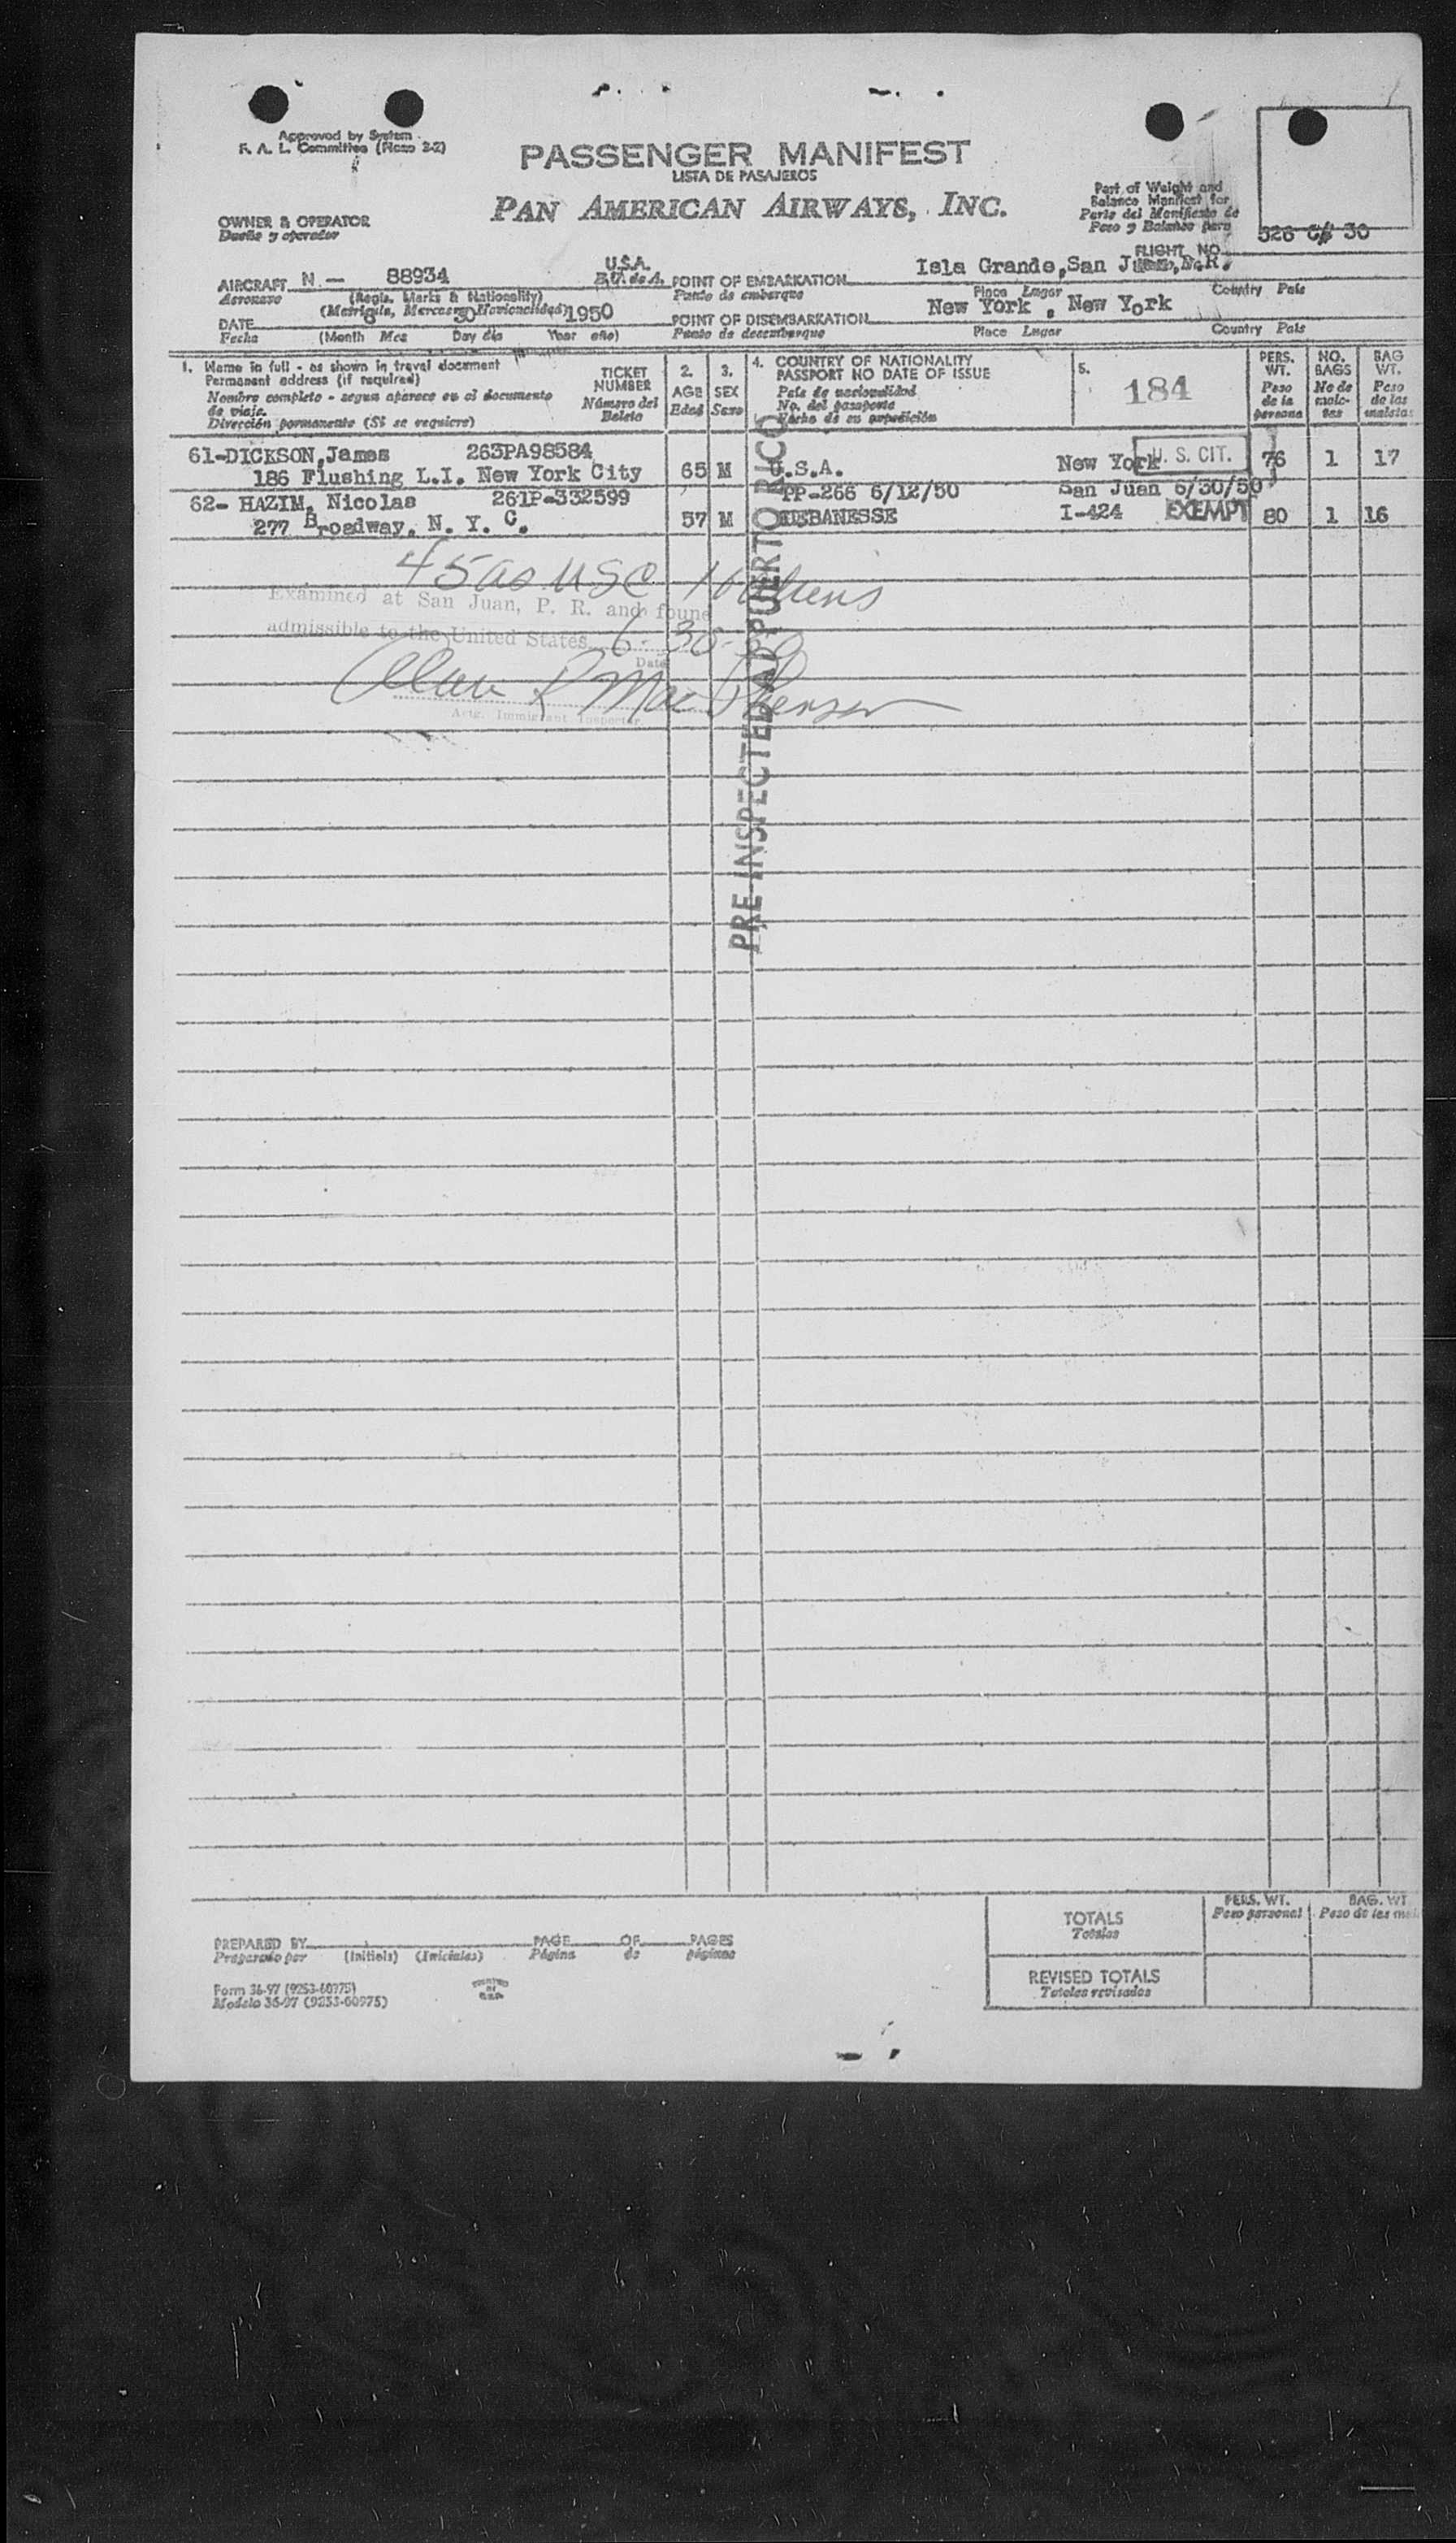 Approved by System
F. A. L. Committee (Reso 2-2)
PASSENGER MANIFEST
LISTA DE PASAJEROS
PAN AMERICAN AIRWAYS, INC.
Part of Weight and
Balance Manifest for
Parte del Manifiesto de
Peso y Balance para
OWNER & OPERATOR
Dueño y operador
526 6/ 30
FLIGHT NO.
AIRCRAFT N - 88934 U.S.A. POINT OF EMBARKATION Isla Grande, San Juan, P.R.
Aeronave (Regis. Marks & Nationality) E.U. de A. Punto de embarque Place Lugar Country País
(Matrícula, Marcas y Nacionalidad)
DATE 6 30 1950 POINT OF DISEMBARKATION New York , New York
Fecha (Month Mes Day día Year año) Punto de desembarque Place Lugar Country País
1. Name in full - as shown in travel document
Permanent address (if required)
Nombre completo - segun aparece en el documento
de viaje.
Dirección permanente (Si se requiere)
TICKET
NUMBER
Número del
Boleto
2.
AGE
Edad
3.
SEX
Sexo
4. COUNTRY OF NATIONALITY
PASSPORT NO DATE OF ISSUE
País de nacionalidad
No. del pasaporte
Fecha de su expedición
5.
184
PERS.
WT.
Peso
de la
persona
NO.
BAGS
No de
male-
tas
BAG
WT.
Peso
de las
maletas
61-DICKSON,James 263PA98584
186 Flushing L.I. New York City 65 M U.S.A. New York U. S. CIT. 76 1 17
62- HAZIM, Nicolas 261P-332599 PP-266 6/12/50 San Juan 6/30/50
277 Broadway, N. Y. C. 57 M LIBANESSE I-424 EXEMPT 80 1 16
Examined at San Juan, P. R. and found
admissible to the United States 6-30-50
Date
Actg. Immigrant Inspector
PRE-INSPECTED AT PUERTO RICO
TOTALS
Totales
PERS. WT.
Peso personal
BAG. WT
Peso de las
REVISED TOTALS
Totales revisados
PREPARED BY PAGE OF PAGES
Preparado por (Initials) (Iniciales) Página de páginas
Form 36-97 (9253-60975)
Modelo 36-97 (9253-60975)